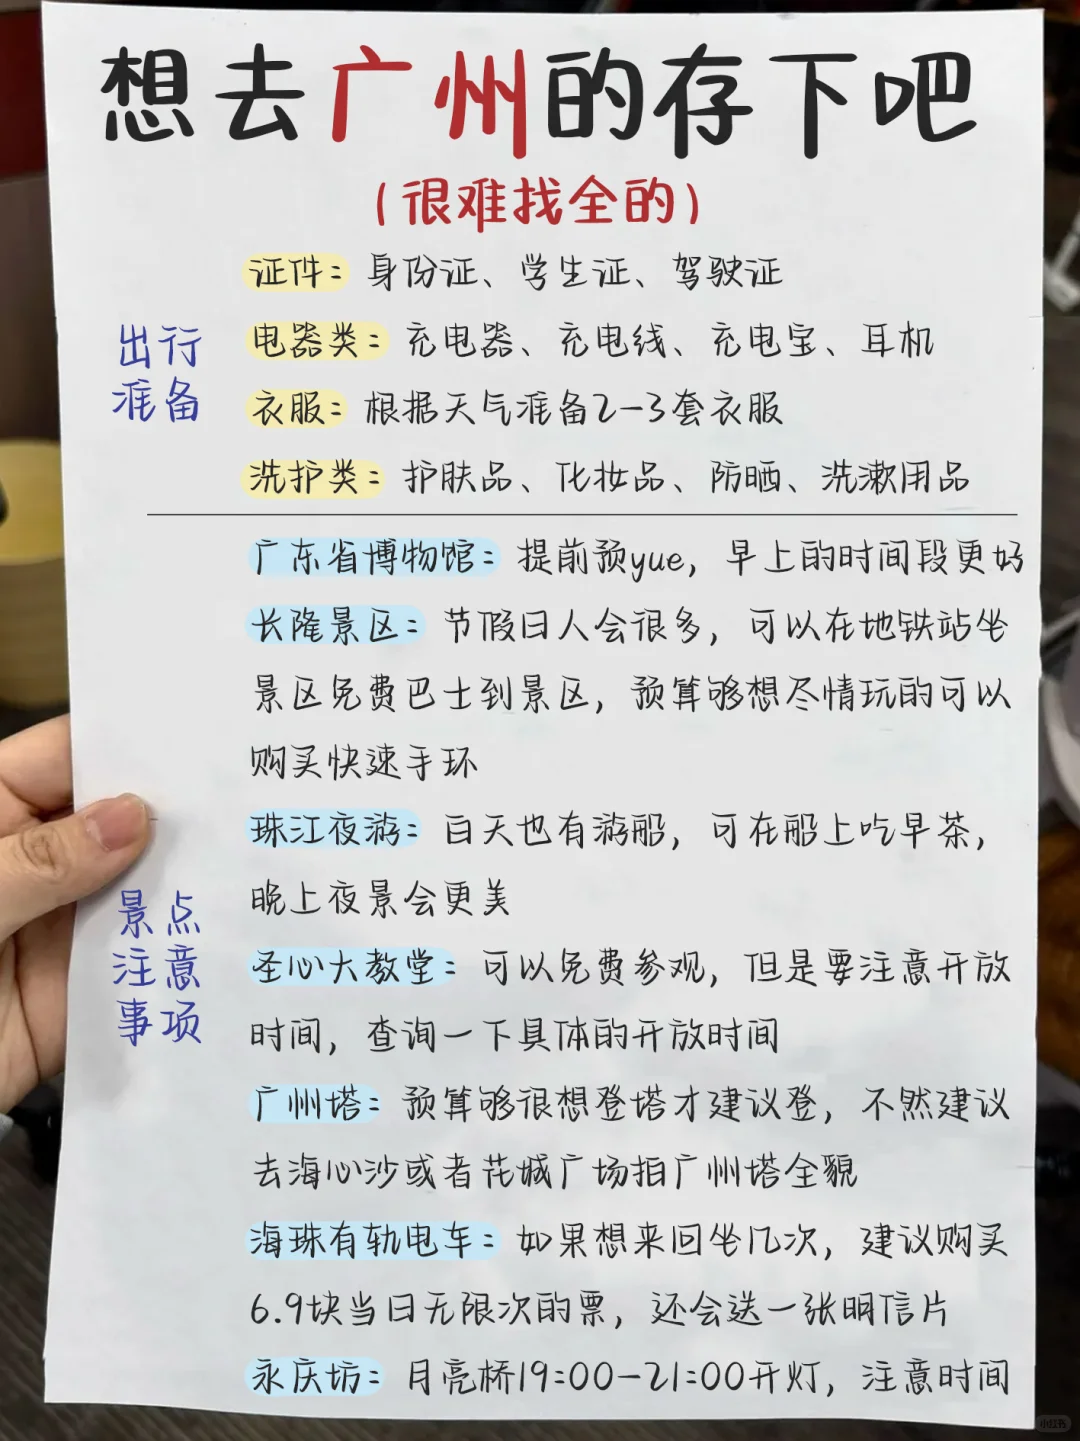 想去广州的存下吧
(很难找全的)
出行
准备
证件：身份证、学生证、驾驶证
电器类：充电器、充电线、充电宝、耳机
衣服：根据天气准备2-3套衣服
洗护类：护肤品、化妆品、防晒、洗漱用品
景点
注意
事项
广东省博物馆：提前预yue，早上的时间段更好
长隆景区：节假日人会很多，可以在地铁站坐
景区免费巴士到景区，预算够想尽情玩的可以
购买快速手环
珠江夜游：白天也有游船，可在船上吃早茶，
晚上夜景会更美
圣心大教堂：可以免费参观，但是要注意开放
时间，查询一下具体的开放时间
广州塔：预算够很想登塔才建议登，不然建议
去海心沙或者花城广场拍广州塔全貌
海珠有轨电车：如果想来回坐几次，建议购买
6.9块当日无限次的票，还会送一张明信片
永庆坊：月亮桥19:00-21:00开灯，注意时间
小红书